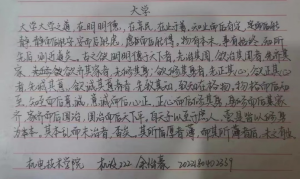 大学
大学之道，在明明德，在亲民，在止于善。知止而后有定，定而后能
静，静而后能安，安而后能虑，虑而后能得。物有本末，事有终始，知所
先后，则近道矣。古之欲明明德于天下者，先治其国，欲治其国者，先齐其
家，欲齐其家者，先修其身；欲修其身者，先正其心，欲正其心
者，先诚其意，欲诚其意者，先致其知，致知在格物，物格而后知
至，知至而后意诚，意诚而后心正，正心而后修其身，
家齐而后国治，国治而后天下平，自天子以至于庶人，壹是皆以修身
为本，其本乱而末治者，否矣，其所厚者薄，而其所薄者厚，未之有也
机电技术学院 222